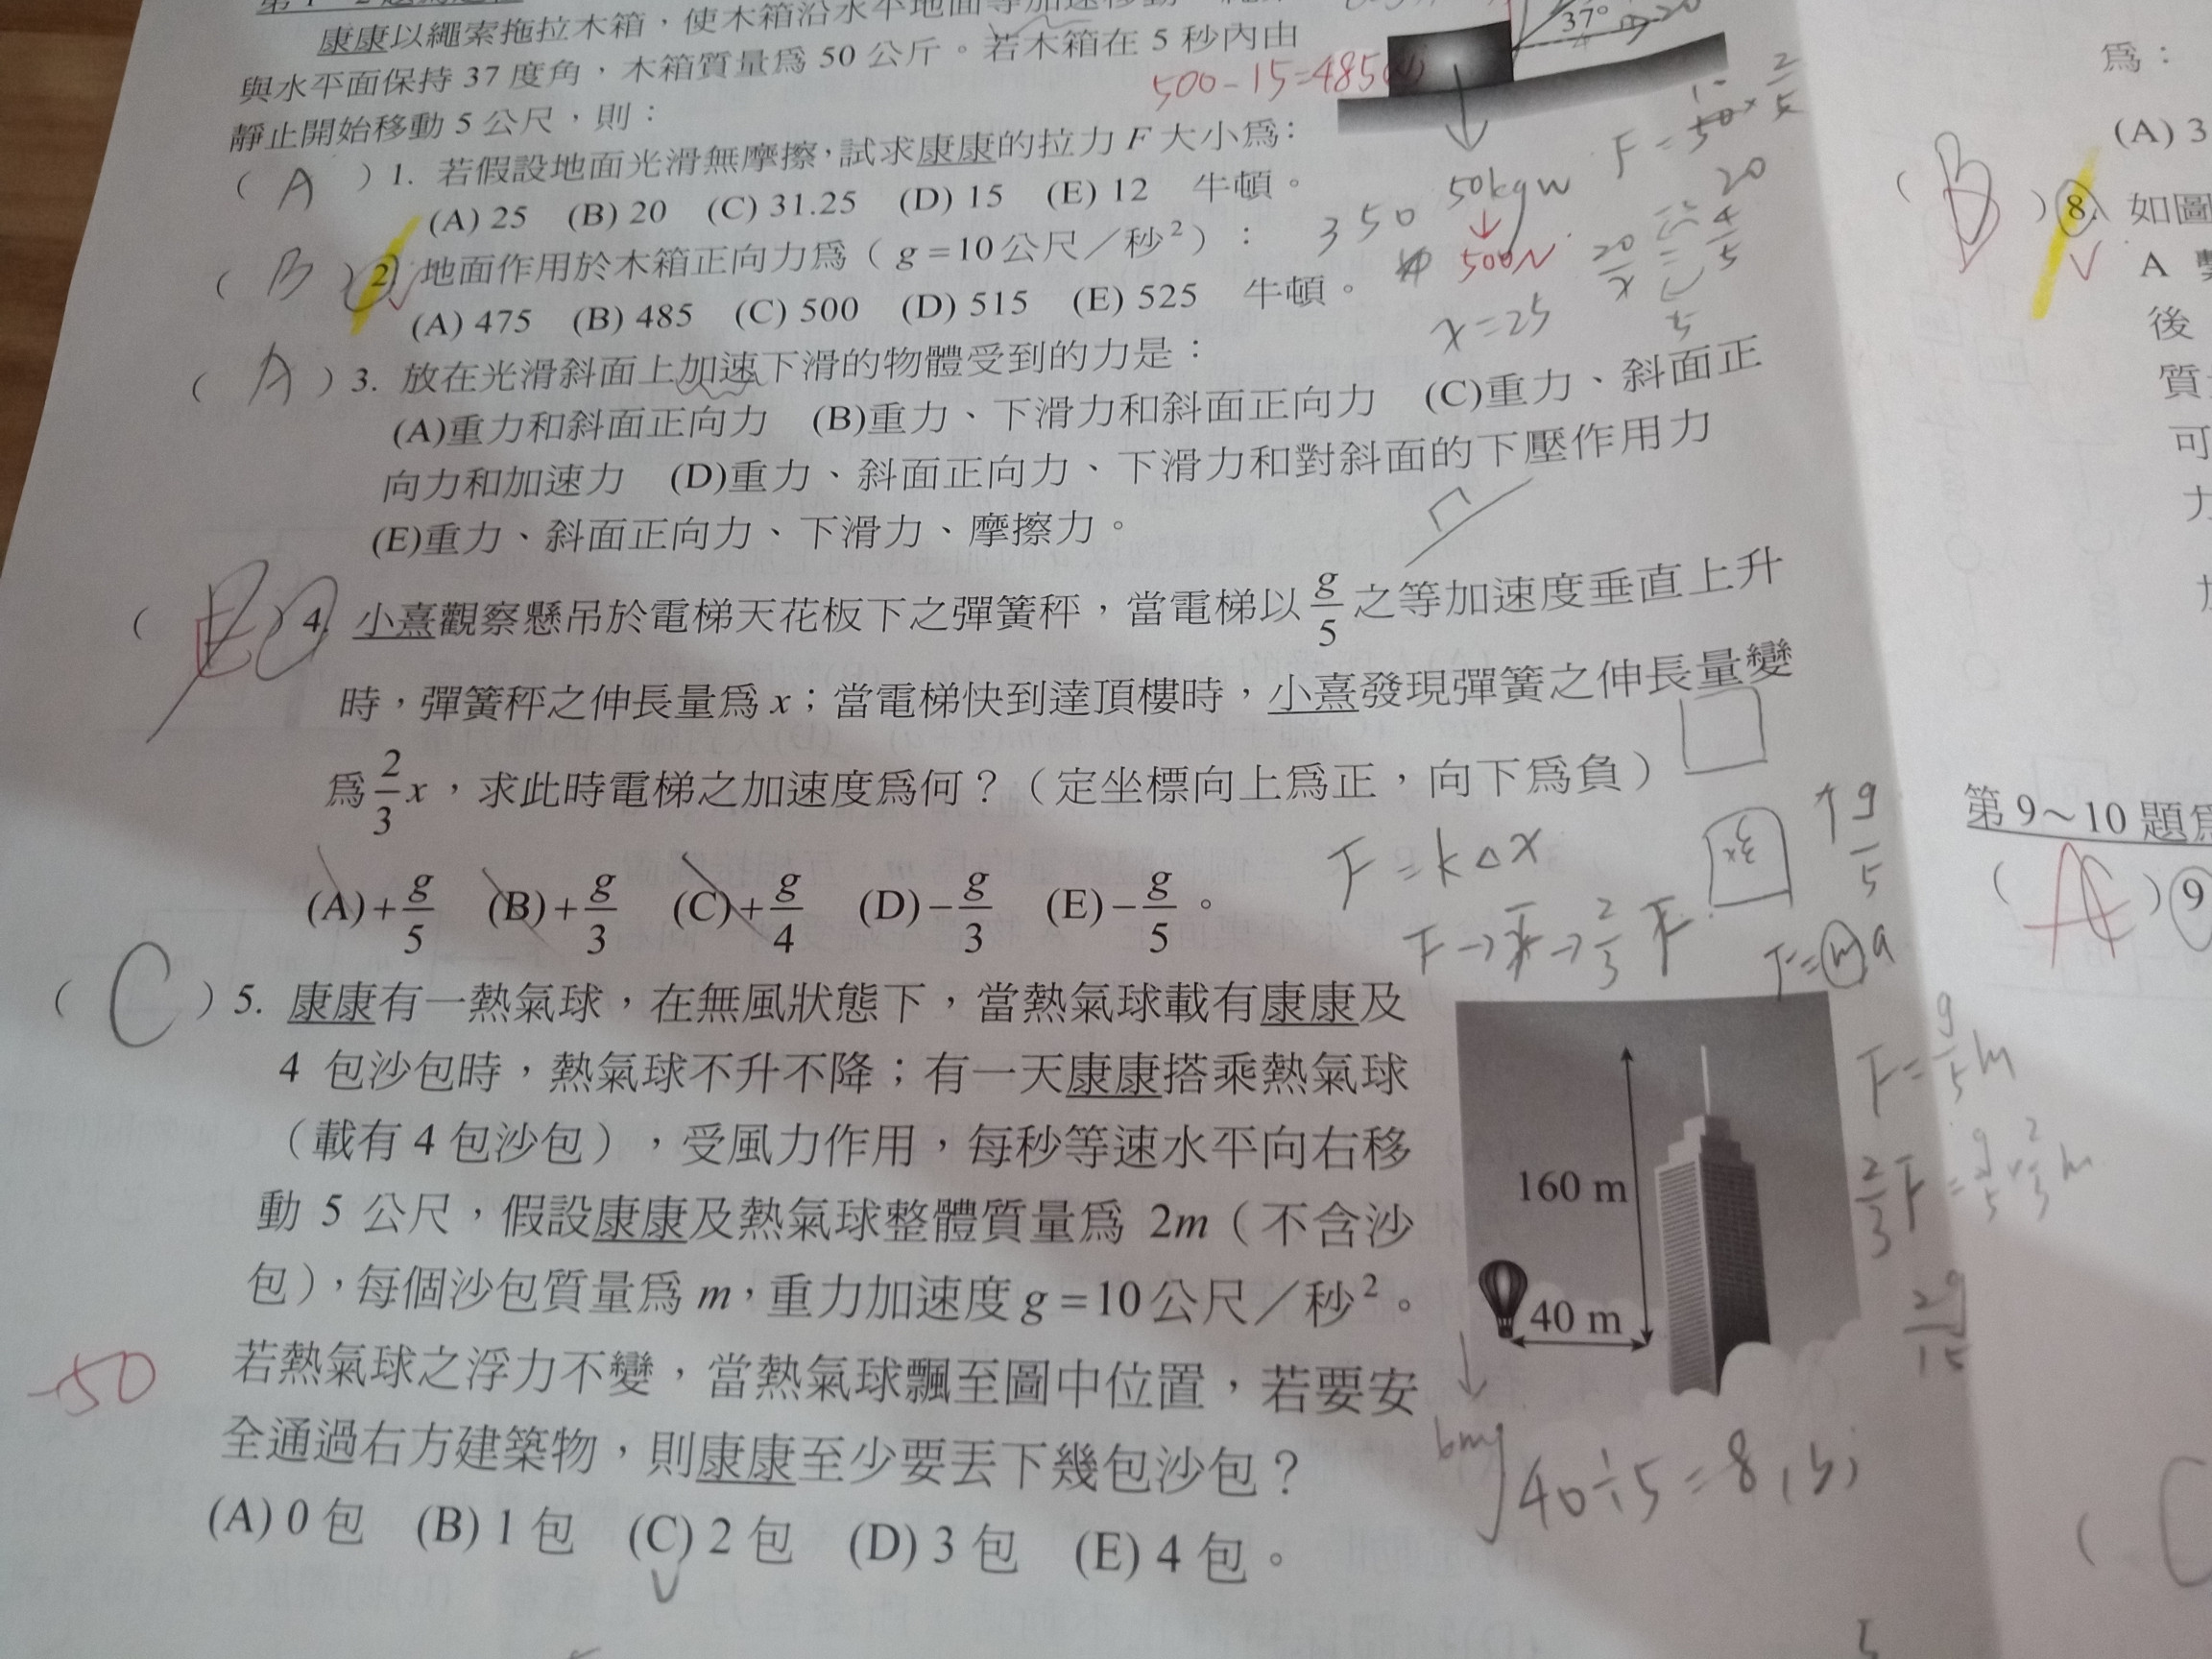 康康以繩索拖拉木箱，使木箱沿水平地面等加速移動
與水平面保持 37 度角，木箱質量為 50 公斤。若木箱在 5 秒內由
靜止開始移動 5 公尺，則：
37°
500-15=485
F = 50 × 2/5
( A ) 1. 若假設地面光滑無摩擦，試求康康的拉力 F 大小為：
(A) 25 (B) 20 (C) 31.25 (D) 15 (E) 12 牛頓。
50kgw
500N
350
( B ) 2. 地面作用於木箱正向力為（g=10公尺／秒²）：
(A) 475 (B) 485 (C) 500 (D) 515 (E) 525 牛頓。
20/x = 4/5
x=25
( A ) 3. 放在光滑斜面上加速下滑的物體受到的力是：
(A)重力和斜面正向力 (B)重力、下滑力和斜面正向力 (C)重力、斜面正
向力和加速力 (D)重力、斜面正向力、下滑力和對斜面的下壓作用力
(E)重力、斜面正向力、下滑力、摩擦力。
( E ) 4. 小熹觀察懸吊於電梯天花板下之彈簧秤，當電梯以 g/5 之等加速度垂直上升
時，彈簧秤之伸長量為 x；當電梯快到達頂樓時，小熹發現彈簧之伸長量變
為 2/3 x，求此時電梯之加速度為何？（定坐標向上為正，向下為負）
(A)+g/5 (B)+g/3 (C)+g/4 (D)−g/3 (E)−g/5。
F = kΔx
↑g/5
F=ma
F = g/5 m
2/3 F = g/5 · 2/3 m
2g/15
( C ) 5. 康康有一熱氣球，在無風狀態下，當熱氣球載有康康及
4 包沙包時，熱氣球不升不降；有一天康康搭乘熱氣球
（載有 4 包沙包），受風力作用，每秒等速水平向右移
動 5 公尺，假設康康及熱氣球整體質量為 2m（不含沙
包），每個沙包質量為 m，重力加速度 g=10公尺／秒²。
若熱氣球之浮力不變，當熱氣球飄至圖中位置，若要安
全通過右方建築物，則康康至少要丟下幾包沙包？
(A) 0 包 (B) 1 包 (C) 2 包 (D) 3 包 (E) 4 包。
160 m
40 m
6mg
40÷5=8(s)
-50
為：
(A) 3
( B ) 8. 如圖
A
後
質
可
力
第 9～10 題為
9